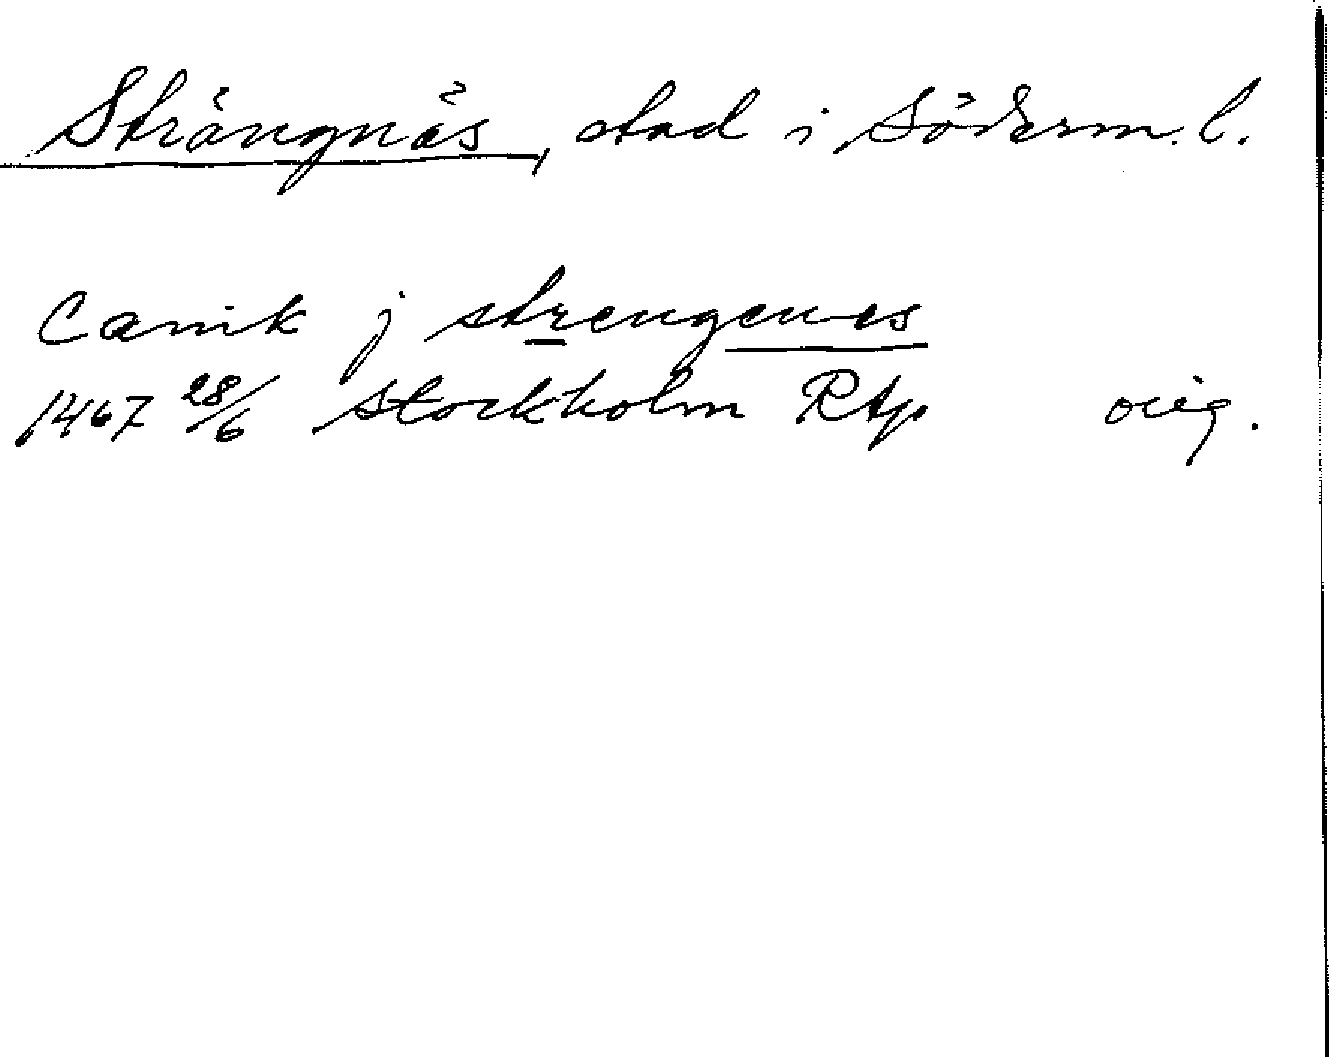 Strängnäs, stad i Söderm. l.
Canik j strengenes
1467 28/6 Stockholm Rtp orig.